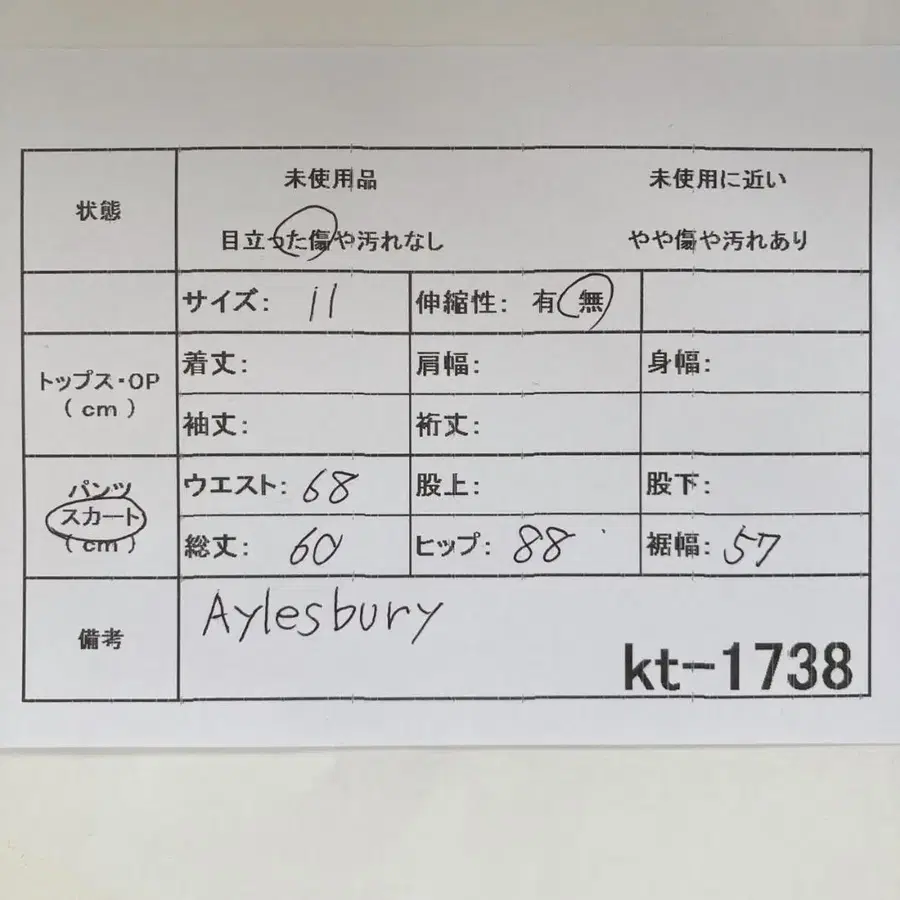 状態
未使用品 未使用に近い
目立った傷や汚れなし やや傷や汚れあり
サイズ: 11 伸縮性: 有 無
トップス・OP
(cm)
着丈: 肩幅: 身幅:
袖丈: 裄丈:
パンツ
スカート
(cm)
ウエスト: 68 股上: 股下:
総丈: 60 ヒップ: 88 裾幅: 57
備考
Aylesbury
kt-1738